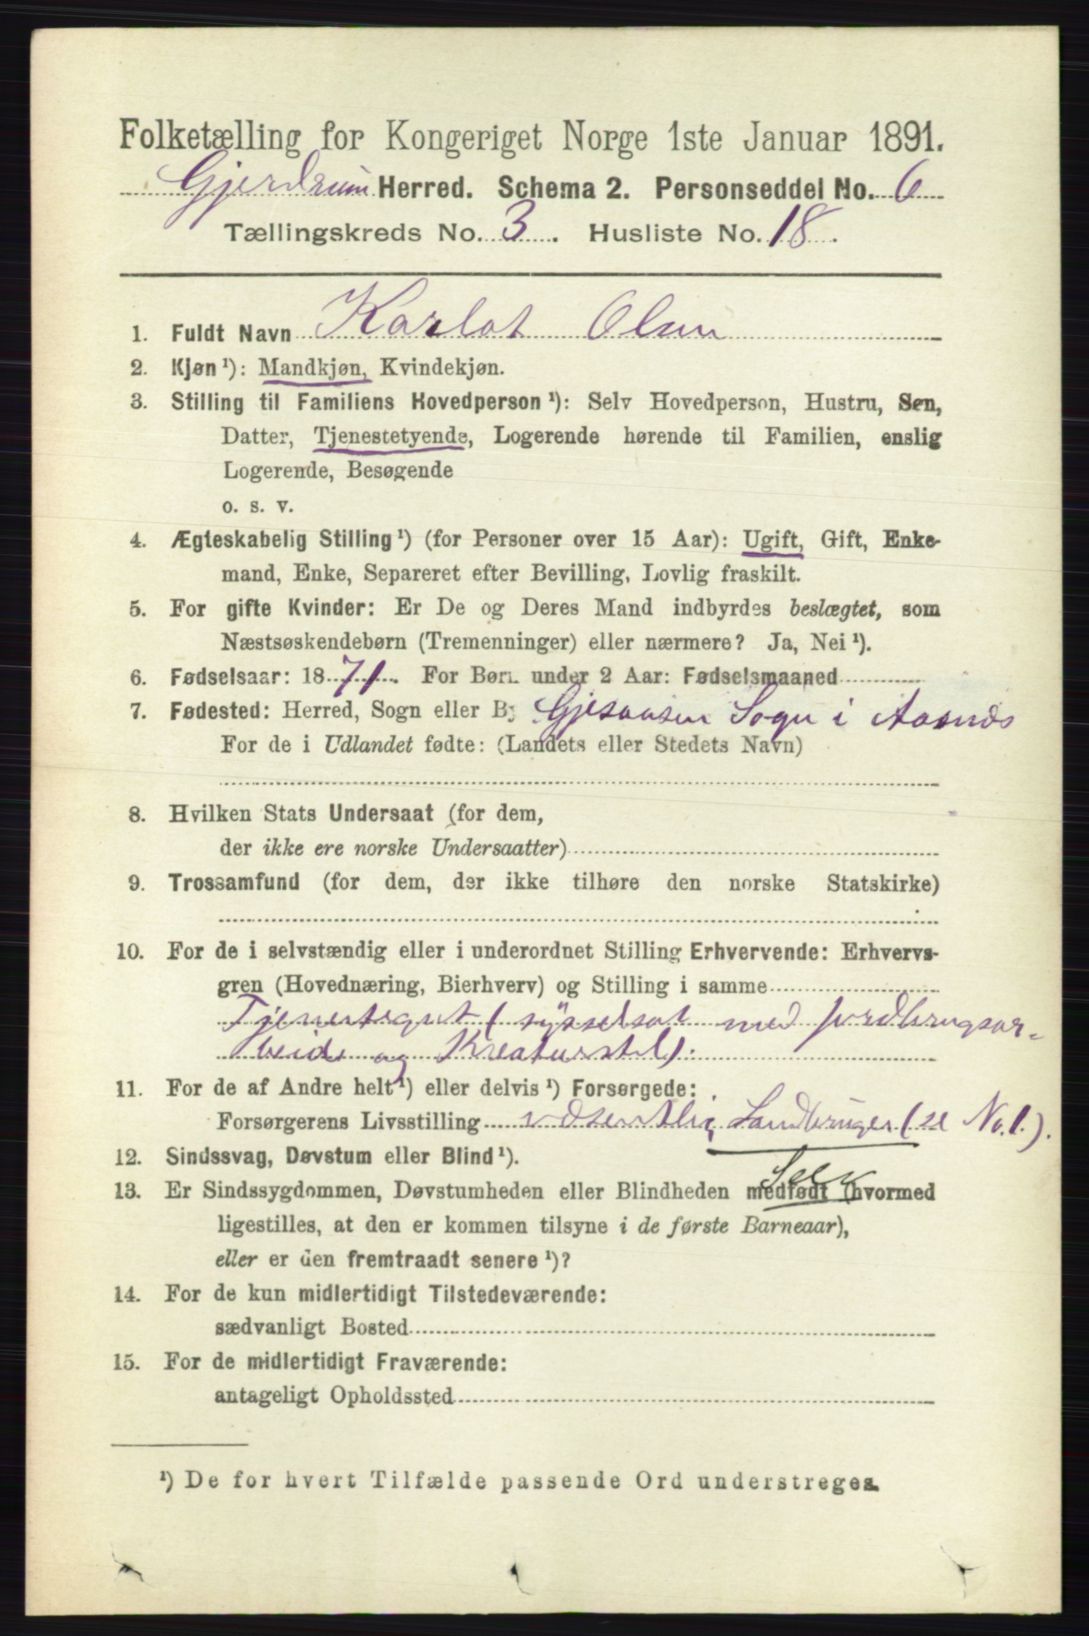 Folketælling for Kongeriget Norge 1ste Januar 1891.
Gjerdrum Herred. Schema 2. Personseddel No. 6
Tællingskreds No. 3. Husliste No. 18.
1. Fuldt Navn Karlot Olsen
2. Kjøn ¹): Mandkjøn, Kvindekjøn.
3. Stilling til Familiens Hovedperson ¹): Selv Hovedperson, Hustru, Søn,
Datter, Tjenestetyende, Logerende hørende til Familien, enslig
Logerende, Besøgende
o. s. v.
4. Ægteskabelig Stilling ¹) (for Personer over 15 Aar): Ugift, Gift, Enke-
mand, Enke, Separeret efter Bevilling, Lovlig fraskilt.
5. For gifte Kvinder: Er De og Deres Mand indbyrdes beslægtet, som
Næstsøskendebørn (Tremenninger) eller nærmere? Ja, Nei ¹).
6. Fødselsaar: 1871. For Børn under 2 Aar: Fødselsmaaned
7. Fødested: Herred, Sogn eller By Gjesaasen Sogn i Aasnæs
For de i Udlandet fødte: (Landets eller Stedets Navn)
8. Hvilken Stats Undersaat (for dem,
der ikke ere norske Undersaatter)
9. Trossamfund (for dem, der ikke tilhøre den norske Statskirke)
10. For de i selvstændig eller i underordnet Stilling Erhvervende: Erhvervs-
gren (Hovednæring, Bierhverv) og Stilling i samme
Tjenestegut (sysselsat med jordbrugsar-
beide og Kreaturstel).
11. For de af Andre helt ¹) eller delvis ¹) Forsørgede:
Forsørgerens Livsstilling væsentlig Landbruger (se No. 1).
12. Sindssvag, Døvstum eller Blind ¹).
13. Er Sindssygdommen, Døvstumheden eller Blindheden medfødt (hvormed
ligestilles, at den er kommen tilsyne i de første Barneaar),
eller er den fremtraadt senere ¹)?
14. For de kun midlertidigt Tilstedeværende:
sædvanligt Bosted
15. For de midlertidigt Fraværende:
antageligt Opholdssted
¹) De for hvert Tilfælde passende Ord understreges.